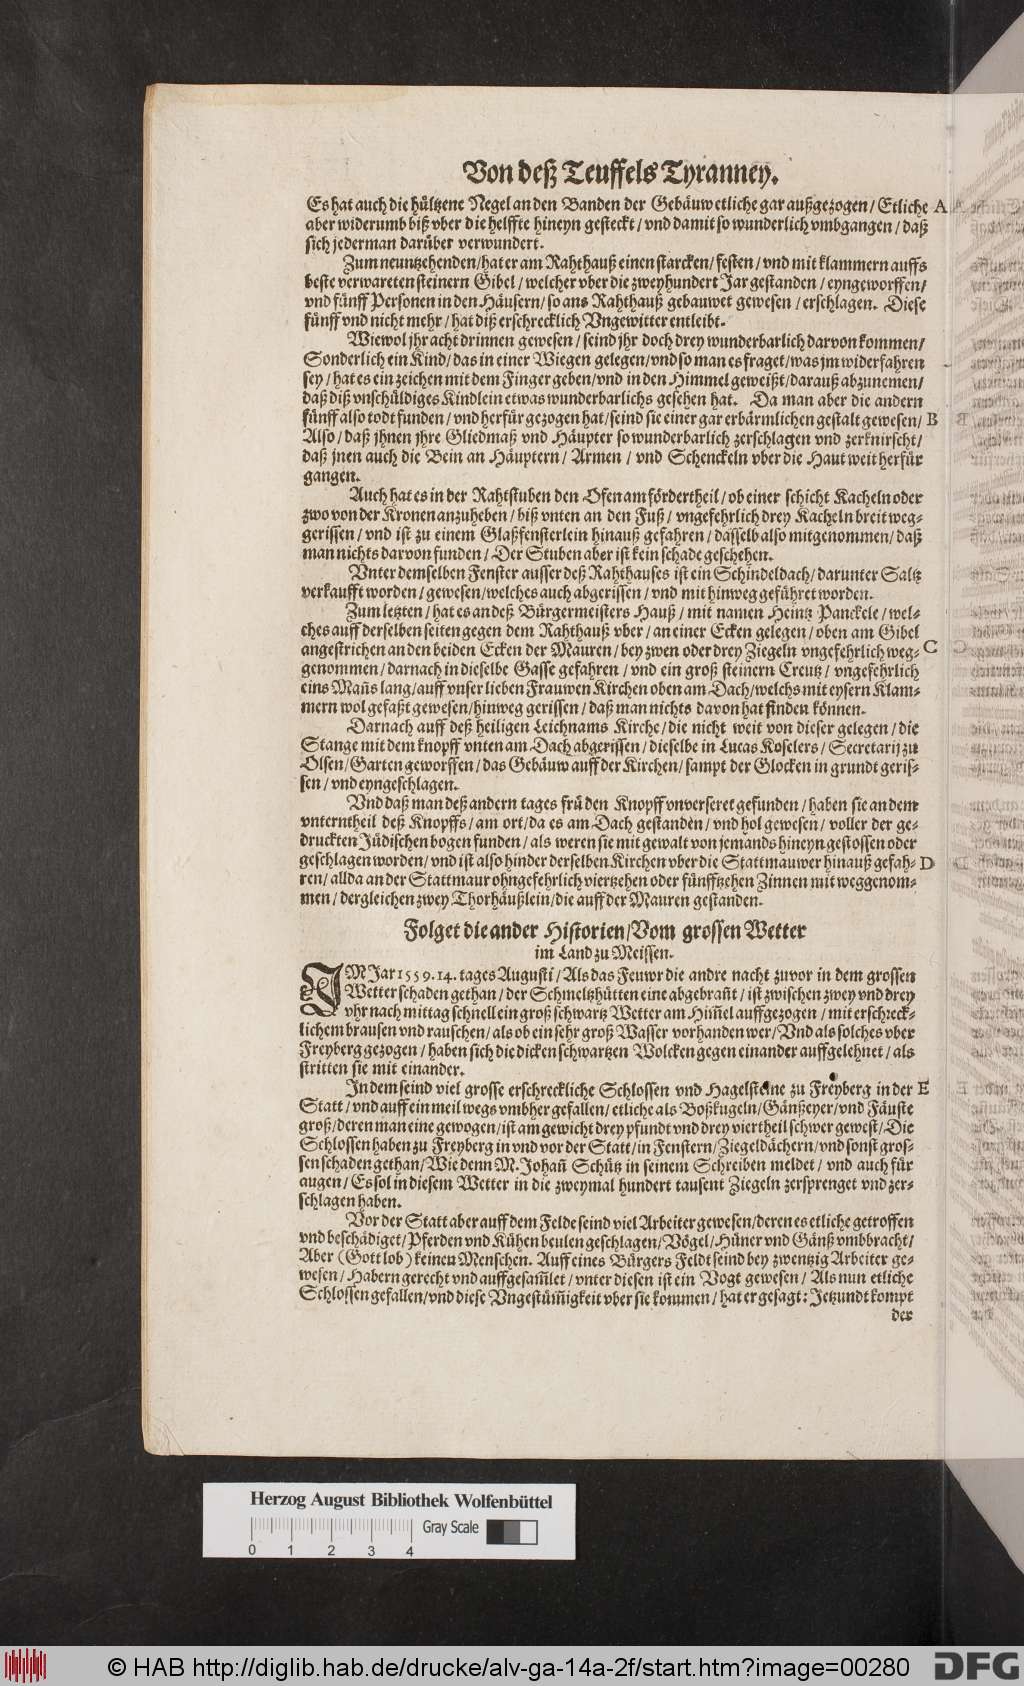 Von deß Teuffels Tyranney.
Es hat auch die hültzene Negel an den Banden der Gebäuw etliche gar außgezogen / Etliche A
aber widerumb biß vber die helffte hineyn gesteckt / vnd damit so wunderlich vmbgangen / daß
sich jederman darüber verwundert.
Zum neuntzehenden / hat er am Rahthauß einen starcken / festen / vnd mit klammern auffs
beste verwareten steinern Gibel / welcher vber die zweyhundert Jar gestanden / eyngeworffen /
vnd fünff Personen in den Häusern / so ans Rahthauß gebauwet gewesen / erschlagen. Diese
fünff vnd nicht mehr / hat diß erschrecklich Vngewitter entleibt.
Wiewol jhr acht drinnen gewesen / seind jhr doch drey wunderbarlich darvon kommen /
Sonderlich ein Kind / das in einer Wiegen gelegen / vnd so man es fraget / was jm widerfahren
sey / hat es ein zeichen mit dem Finger geben / vnd in den Himmel geweißt / darauß abzunemen /
daß diß vnschüldiges Kindlein etwas wunderbarlichs gesehen hat. Da man aber die andern
fünff also todt funden / vnd herfür gezogen hat / seind sie einer gar erbärmlichen gestalt gewesen / B
Also / daß jhnen jhre Gliedmaß vnd Häupter so wunderbarlich zerschlagen vnd zerknirscht /
daß jnen auch die Bein an Häuptern / Armen / vnd Schenckeln vber die Haut weit herfür
gangen.
Auch hat es in der Rahtstuben den Ofen am fördertheil / ob einer schicht Kacheln oder
zwo von der Kronen anzuheben / biß vnten an den Fuß / vngefehrlich drey Kacheln breit weg-
gerissen / vnd ist zu einem Glaßfensterlein hinauß gefahren / dasselb also mitgenommen / daß
man nichts darvon funden / Der Stuben aber ist kein schade geschehen.
Vnter demselben Fenster ausser deß Rahthauses ist ein Schindeldach / darunter Saltz
verkaufft worden / gewesen / welches auch abgerissen / vnd mit hinweg geführet worden.
Zum letzten / hat es an deß Bürgermeisters Hauß / mit namen Heintz Panckele / wel-
ches auff derselben seiten gegen dem Rahthauß vber / an einer Ecken gelegen / oben am Gibel
angestrichen an den beiden Ecken der Mauren / bey zwen oder drey Ziegeln vngefehrlich weg- C
genommen / darnach in dieselbe Gasse gefahren / vnd ein groß steinern Creutz / vngefehrlich
eins Mañs lang / auff vnser lieben Frauwen Kirchen oben am Dach / welchs mit eysern Klam-
mern wol gefaßt gewesen / hinweg gerissen / daß man nichts davon hat finden können.
Darnach auff deß heiligen Leichnams Kirche / die nicht weit von dieser gelegen / die
Stange mit dem knopff vnten am Dach abgerissen / dieselbe in Lucas Koselers / Secretarij zu
Olsen / Garten geworffen / das Gebäuw auff der Kirchen / sampt der Glocken in grundt geris-
sen / vnd eyngeschlagen.
Vnd daß man deß andern tages frü den Knopff vnverseret gefunden / haben sie an dem
vnterntheil deß Knopffs / am ort / da es am Dach gestanden / vnd hol gewesen / voller der ge-
druckten Jüdischen bogen funden / als weren sie mit gewalt von jemands hineyn gestossen oder
geschlagen worden / vnd ist also hinder derselben Kirchen vber die Stattmauwer hinauß gefah- D
ren / allda an der Stattmaur ohngefehrlich viertzehen oder fünfftzehen Zinnen mit weggenom-
men / dergleichen zwey Thorhäußlein / die auff der Mauren gestanden.
Folget die ander Historien / Vom grossen Wetter
im Land zu Meissen.
IM Jar 1559. 14. tages Augusti / Als das Feuwr die andre nacht zuvor in dem grossen
Wetter schaden gethan / der Schmeltzhütten eine abgebrañt / ist zwischen zwey vnd drey
vhr nach mittag schnell ein groß schwartz Wetter am Him̃el auffgezogen / mit erschreck-
lichem brausen vnd rauschen / als ob ein sehr groß Wasser vorhanden wer / Vnd als solches vber
Freyberg gezogen / haben sich die dicken schwartzen Wolcken gegen einander auffgelehnet / als
stritten sie mit einander.
In dem seind viel grosse erschreckliche Schlossen vnd Hagelsteine zu Freyberg in der E
Statt / vnd auff ein meil wegs vmbher gefallen / etliche als Boßkugeln / Gänßeyer / vnd Fäuste
groß / deren man eine gewogen / ist am gewicht drey pfundt vnd drey viertheil schwer gewest / Die
Schlossen haben zu Freyberg in vnd vor der Statt / in Fenstern / Ziegeldächern / vnd sonst gros-
sen schaden gethan / Wie denn M. Johañ Schütz in seinem Schreiben meldet / vnd auch für
augen / Es sol in diesem Wetter in die zweymal hundert tausent Ziegeln zersprenget vnd zer-
schlagen haben.
Vor der Statt aber auff dem Felde seind viel Arbeiter gewesen / deren es etliche getroffen
vnd beschädiget / Pferden vnd Kühen beulen geschlagen / Vögel / Hüner vnd Gänß vmbbracht /
Aber (Gott lob) keinen Menschen. Auff eines Bürgers Feldt seind bey zwentzig Arbeiter ge-
wesen / Habern gerecht vnd auffgesam̃let / vnter diesen ist ein Vogt gewesen / Als nun etliche
Schlossen gefallen / vnd diese Vngestüm̃igkeit vber sie kommen / hat er gesagt: Jetzundt kompt
der
Herzog August Bibliothek Wolfenbüttel
Gray Scale
0 1 2 3 4
© HAB http://diglib.hab.de/drucke/alv-ga-14a-2f/start.htm?image=00280
DFG